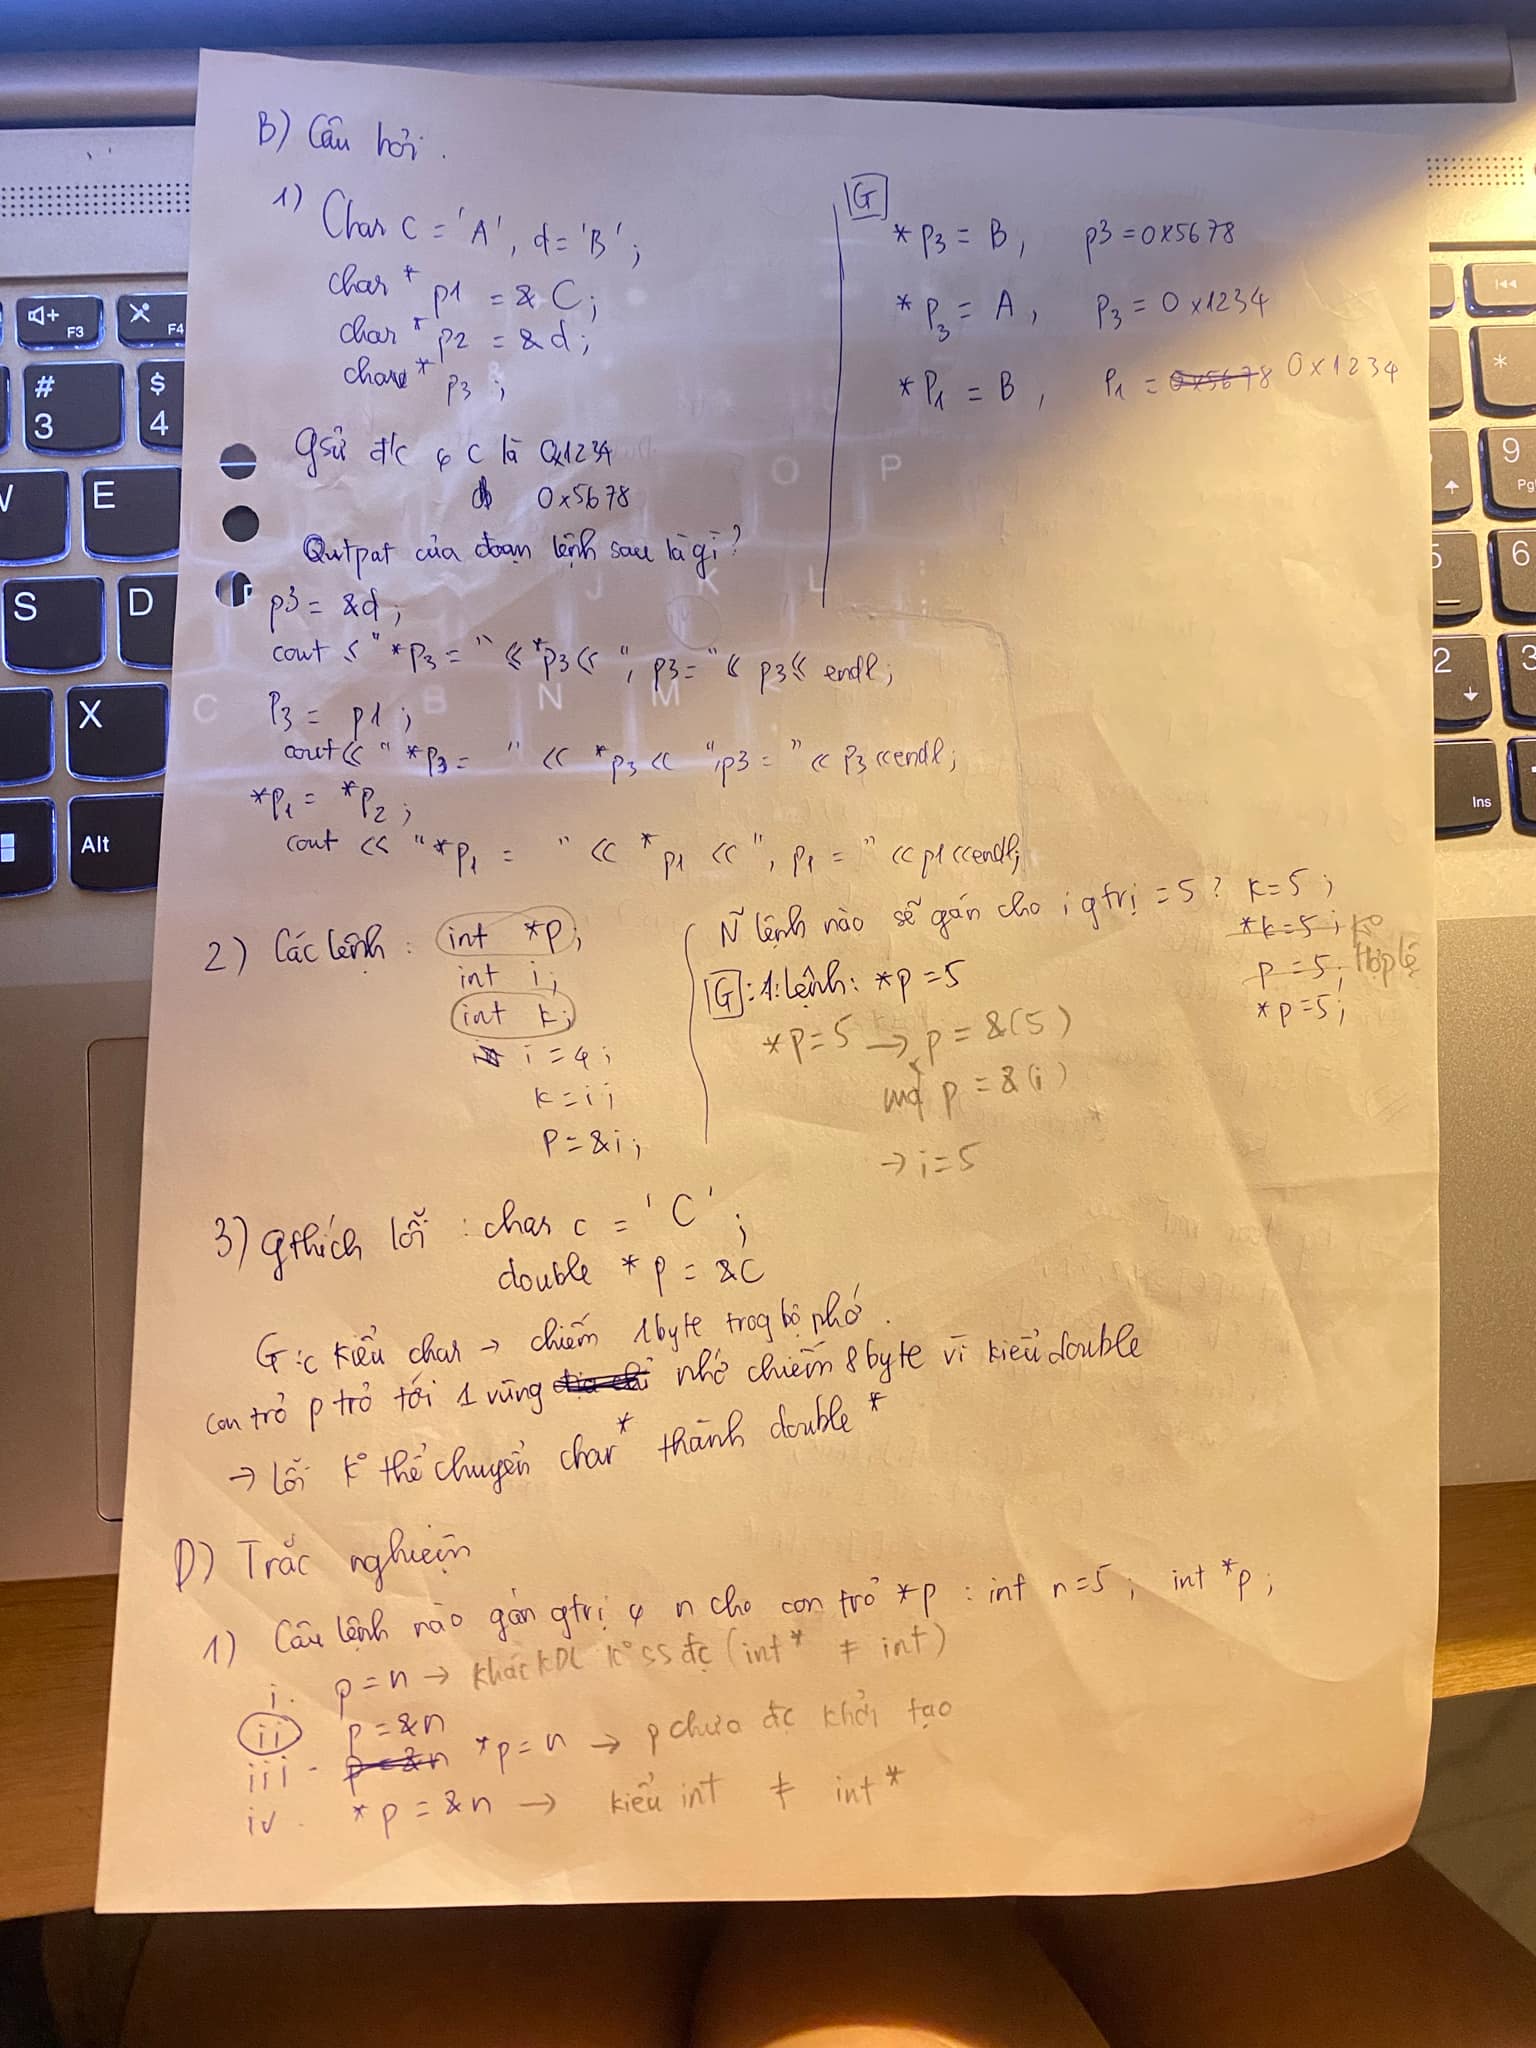 B) Câu hỏi.
1) Char C = 'A', d = 'B';
char * p1 = & C;
char * p2 = & d;
char * p3 ;
Gsử đ/c of C là 0x1234
d 0x5678
Output của đoạn lệnh sau là gì?
p3 = &d;
cout << "*p3 = " << *p3 << ", p3=" << p3 << endl;
P3 = p1;
cout << " *p3 = " << *p3 << ", p3 = " << P3 << endl;
*P1 = *P2;
cout << "*P1 = " << *p1 << ", p1 = " << p1 << endl;
G
*p3 = B, p3 = 0x5678
*P3 = A, P3 = 0x1234
*P1 = B, P1 = 0x5678 0x1234
2) Các lệnh : int *p;
int i;
int k;
i = 4;
k = i;
P = &i;
N~ lệnh nào sẽ gán cho i gtrị = 5? K=5;
*k=5; Ko
p = 5; Hợp lệ
*p=5;
G: 1: lệnh: *p = 5
*p=5 → p = &(5)
mà p = &(i)
→ i = 5
3) Gthích lỗi : char c = 'C';
double *p = &C
G: c kiểu char → chiếm 1byte trog bộ nhớ.
con trỏ p trỏ tới 1 vùng địa chỉ nhớ chiếm 8byte vì kiểu double
→ Lỗi ko thể chuyển char* thành double*
D) Trắc nghiệm
1) Câu lệnh nào gán gtrị of n cho con trỏ *p : int n=5; int *p;
i. p = n → khác KDL ko SS đc (int* ≠ int)
ii p = &n
iii. p = &n *p = n → p chưa đc khởi tạo
iv. *p = &n → kiểu int ≠ int*
F3
F4
#
3
$
4
E
S
D
X
Alt
O
P
J
K
L
C
B
N
M
*
9
Pg
5
6
2
3
Ins